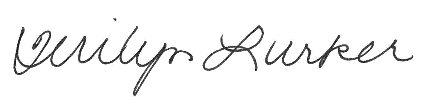 Verilyn Lurker